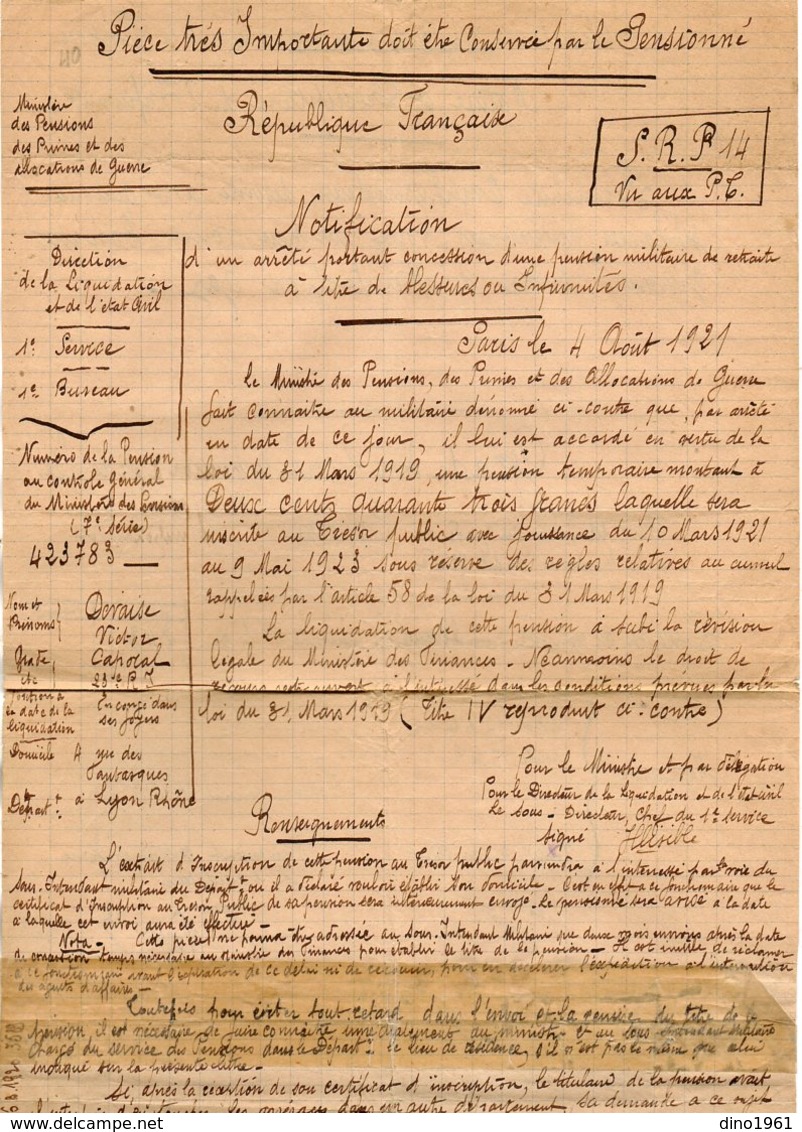 Pièce très Importante doit être Conservée par le Pensionné
Ministère
des Pensions
des Primes et des
allocations de Guerre
République Française
S. R. P. 14
Vu aux P. T.
Notification
d'un arrêté portant concession d'une pension militaire de retraite
à titre de blessures ou Infirmités.
Direction
de la Liquidation
et de l'etat Civil
1er Service
1er Bureau
Numéro de la Pension
au contrôle général
du Ministère des Pensions
(7e série)
423783
Nom et
Prénoms
Devaise
Victor
Grade
etc
Caporal
23e R. I
Position à
la date de la
liquidation
En congé dans
ses foyers
Domicile 4 rue des
à Lyon Rhône
Départt
Paris le 4 Août 1921
Le Ministre des Pensions, des Primes et des Allocations de Guerre
fait connaitre au militaire dénommé ci-contre que, par arrêté
en date de ce jour, il lui est accordé en vertu de la
loi du 31 Mars 1919, une pension temporaire montant à
Deux cent quarante trois francs laquelle sera
inscrite au Tresor public avec jouissance du 10 Mars 1921
au 9 Mai 1923 sous réserve des règles relatives au cumul
rappelées par l'article 58 de la loi du 31 Mars 1919
La liquidation de cette pension à subi la révision
légale du Ministère des Finances. Néanmoins le droit de
recours reste ouvert à l'intéressé dans les conditions prévues par la
loi du 31 Mars 1919 (Titre IV reproduit ci-contre)
Pour le Ministre et par délégation
Pour le Directeur de la Liquidation et de l'etat civil
Le Sous-Directeur, Chef du 1er Service
signé Illisible
Renseignements
L'extrait d'Inscription de cette pension au Trésor public parviendra à l'intéressé par la voie du
Sous-Intendant militaire du Départt ou il a déclaré vouloir établir son domicile. C'est en effet à ce fonctionnaire que le
certificat d'Inscription au Trésor Public de sa pension sera ultérieurement envoyé. Le pensionné sera avisé à la date
à laquelle cet envoi aura été effectué.
Nota - Cette pièce ne pourra être adressée au Sous-Intendant Militaire que deux mois environ après la date
de concession, temps nécessaire au ministère des Finances pour établir le titre de la pension - Il est inutile de réclamer
à ce fonctionnaire avant l'expiration de ce délai ni de
des agents d'affaires.
Toutefois pour éviter tout retard dans l'envoi et la remise du titre de la
pension, il est nécessaire de faire connaître immédiatement au ministre et au sous-intendant militaire
chargé du service des Pensions dans le Départt le lieu de résidence, s'il n'est pas le même que celui
indiqué sur la présente lettre.
Si, après la réception de son certificat d'inscription, le titulaire de la pension avait,
dans un autre département, sa demande à ce sujet
dino1961